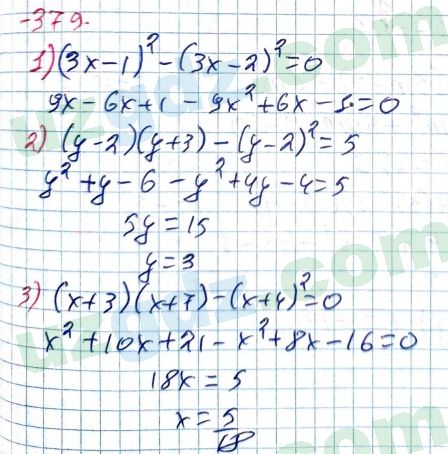 -379.
1) (3x-1)² - (3x-2)² = 0
9x - 6x + 1 - 9x² + 6x - 1 = 0
2) (y-2)(y+3) - (y-2)² = 5
y² + y - 6 - y² + 4y - 4 = 5
5y = 15
y = 3
3) (x+3)(x+7) - (x+4)² = 0
x² + 10x + 21 - x² + 8x - 16 = 0
18x = 5
x = 5/18